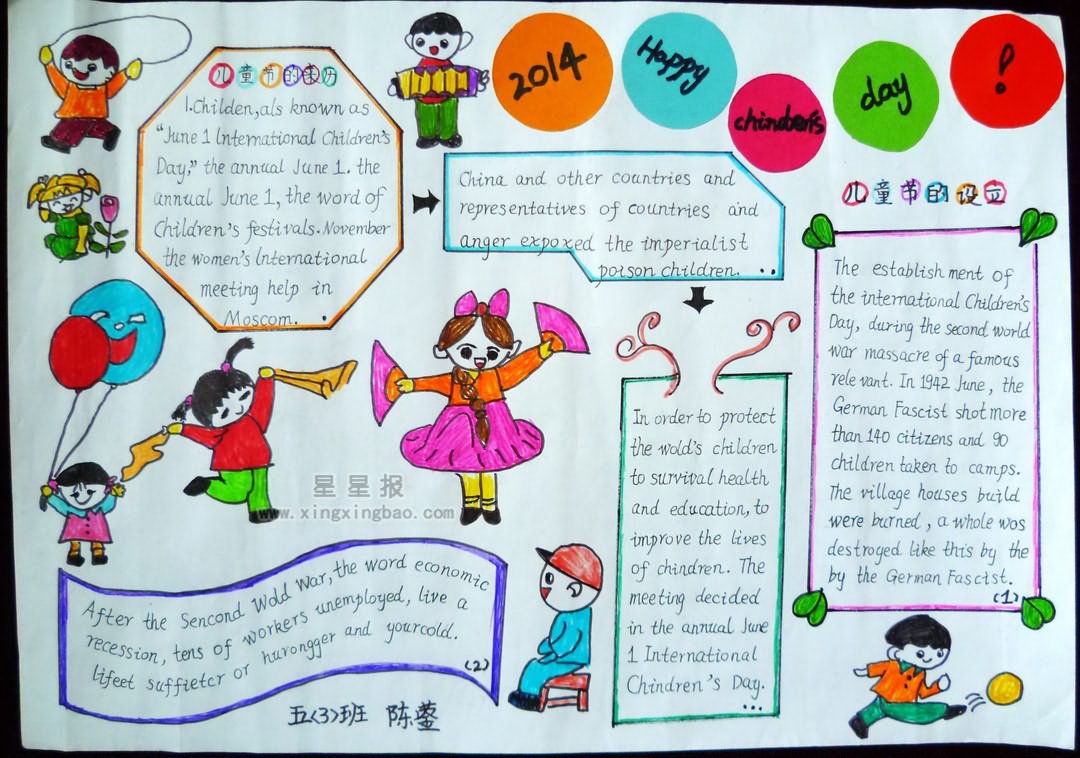 2014
Happy
chinder's
day
!
儿童节的来历
1.Childen,als known as
"June 1 International Children's
Day," the annual June 1. the
annual June 1, the word of
Children's festivals. November
the women's International
meeting help in
Moscom.
China and other countries and
representatives of countries and
anger expoxed the imperialist
poison children. ..
In order to protect
the wold's children
to survival health
and education, to
improve the lives
of chindren. The
meeting decided
in the annual June
1 International
Chindren's Day.
...
儿童节的设立
The establish ment of
the international Children's
Day, during the second world
war massacre of a famous
rele vant. In 1942 June, the
German Fascist shot more
than 140 citizens and 90
children taken to camps.
The village houses build
were burned, a whole wos
destroyed like this by the
by the German Fascist.
(1)
After the Sencond Wold War, the word economic
recession, tens of workers unemployed, live a
lifeet suffietcr or hurongger and yourcold.
(2)
五(3)班 陈蓥
星星报
www.xingxingbao.com